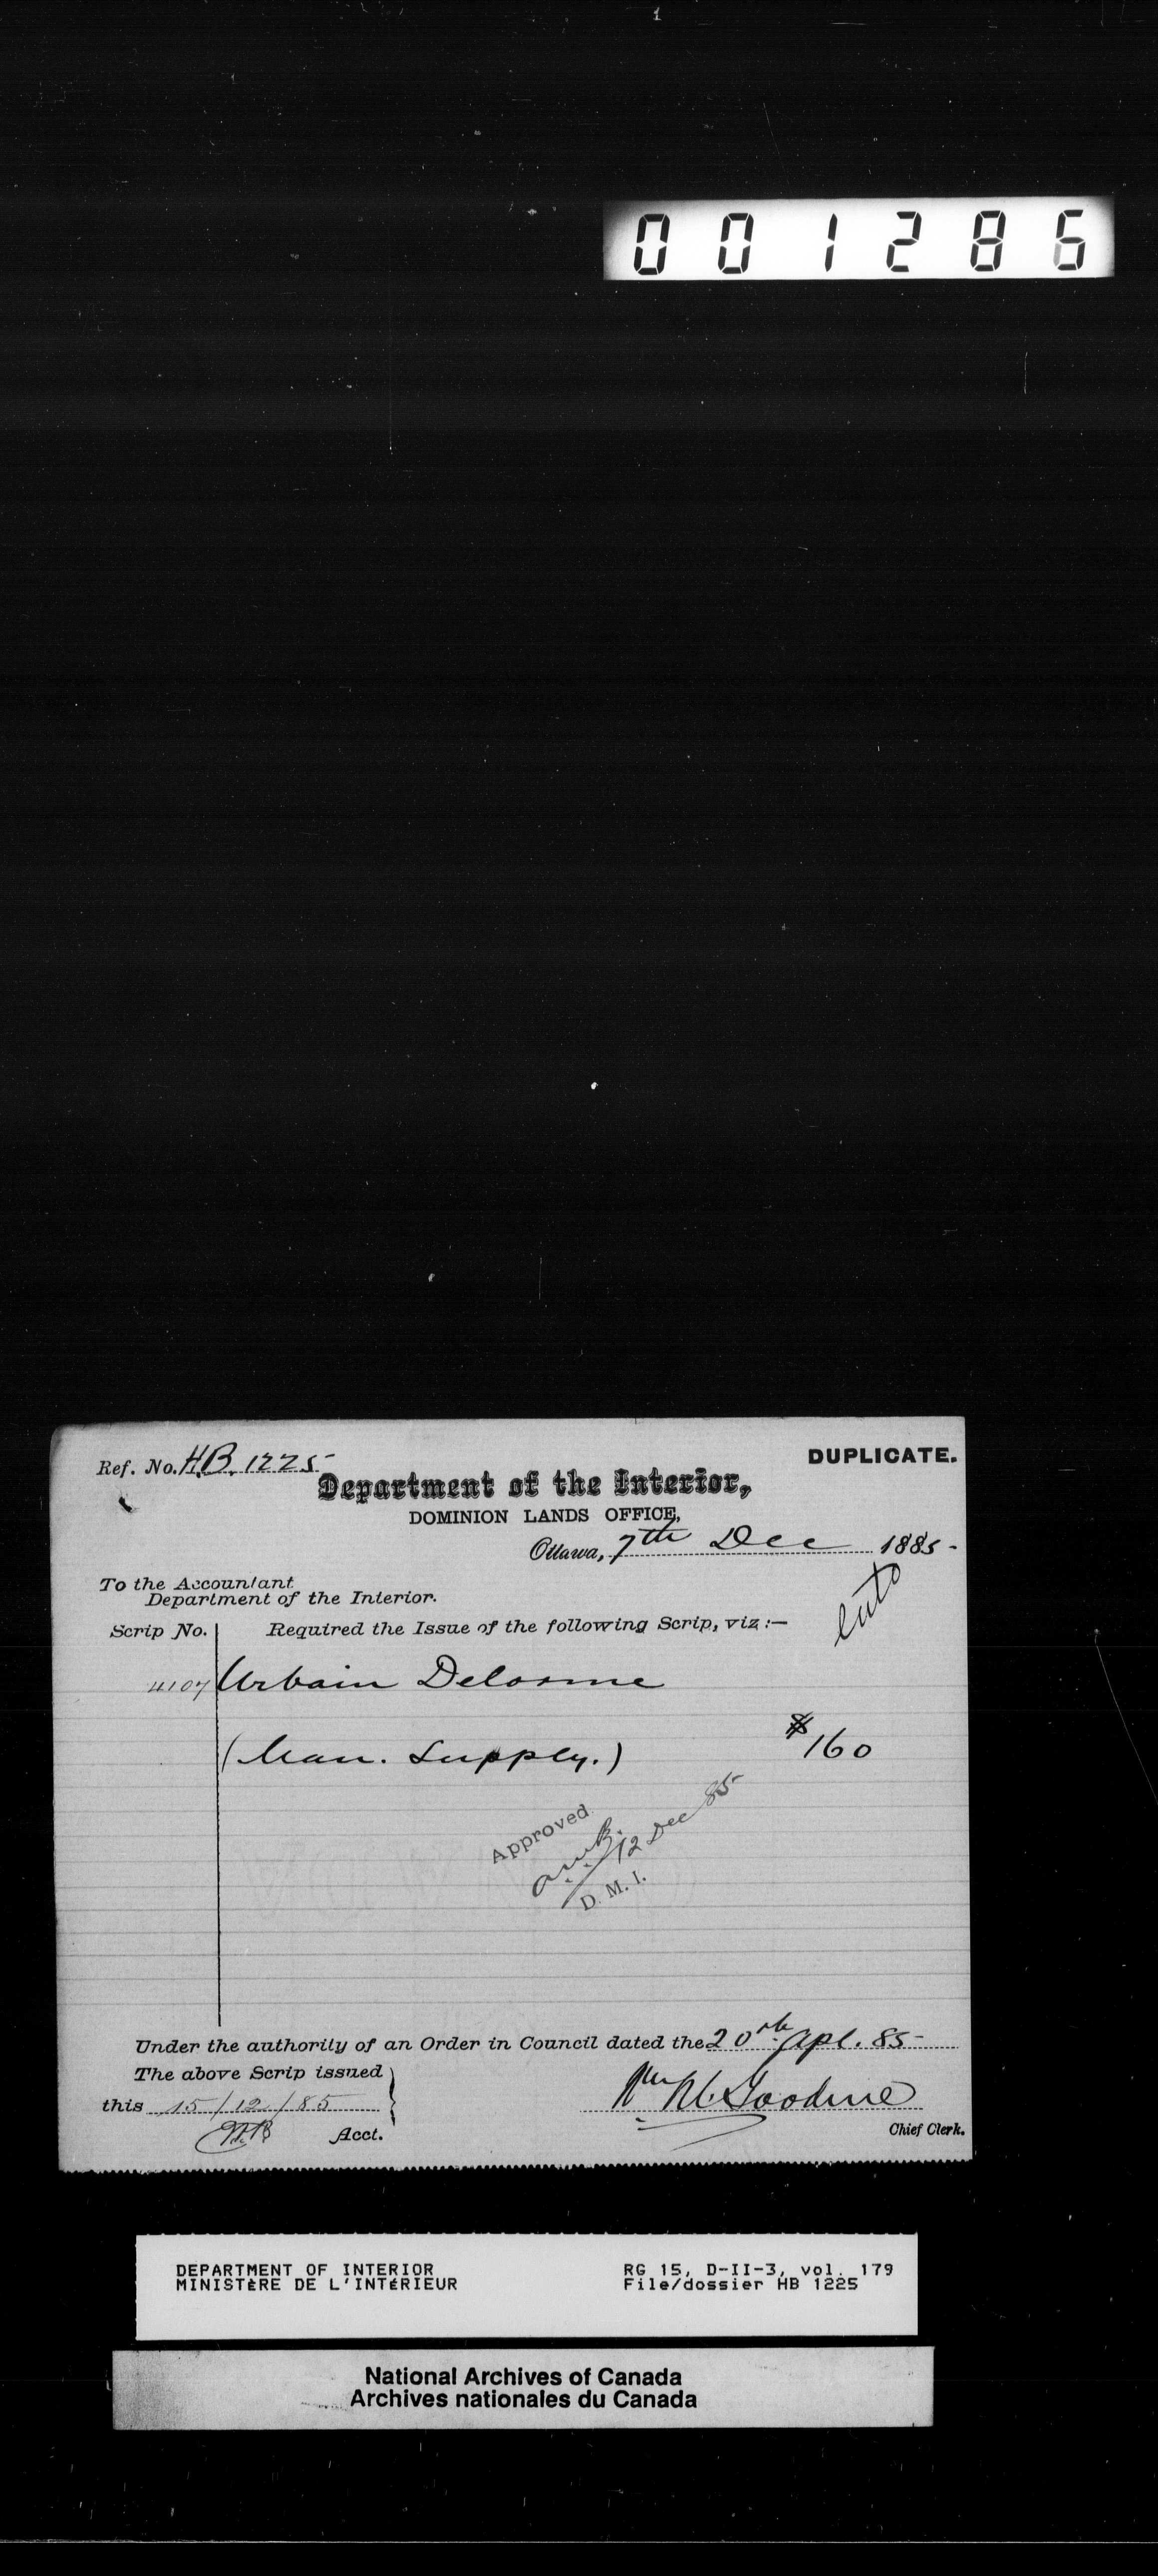 001286
Ref. No. H.B. 1225
DUPLICATE.
Department of the Interior,
DOMINION LANDS OFFICE,
Ottawa, 7th Dec 1885-
To the Accountant
Department of the Interior.
Scrip No. Required the Issue of the following Scrip, viz:—
4107 Urbain Delorme
(Man. Supply.) $160
Approved
12 Dec 85
D. M. I.
Under the authority of an Order in Council dated the 20th Apl. 85
The above Scrip issued
this 15/12/85
Acct.
Chief Clerk.
DEPARTMENT OF INTERIOR
MINISTÈRE DE L'INTÉRIEUR
RG 15, D-II-3, vol. 179
File/dossier HB 1225
National Archives of Canada
Archives nationales du Canada